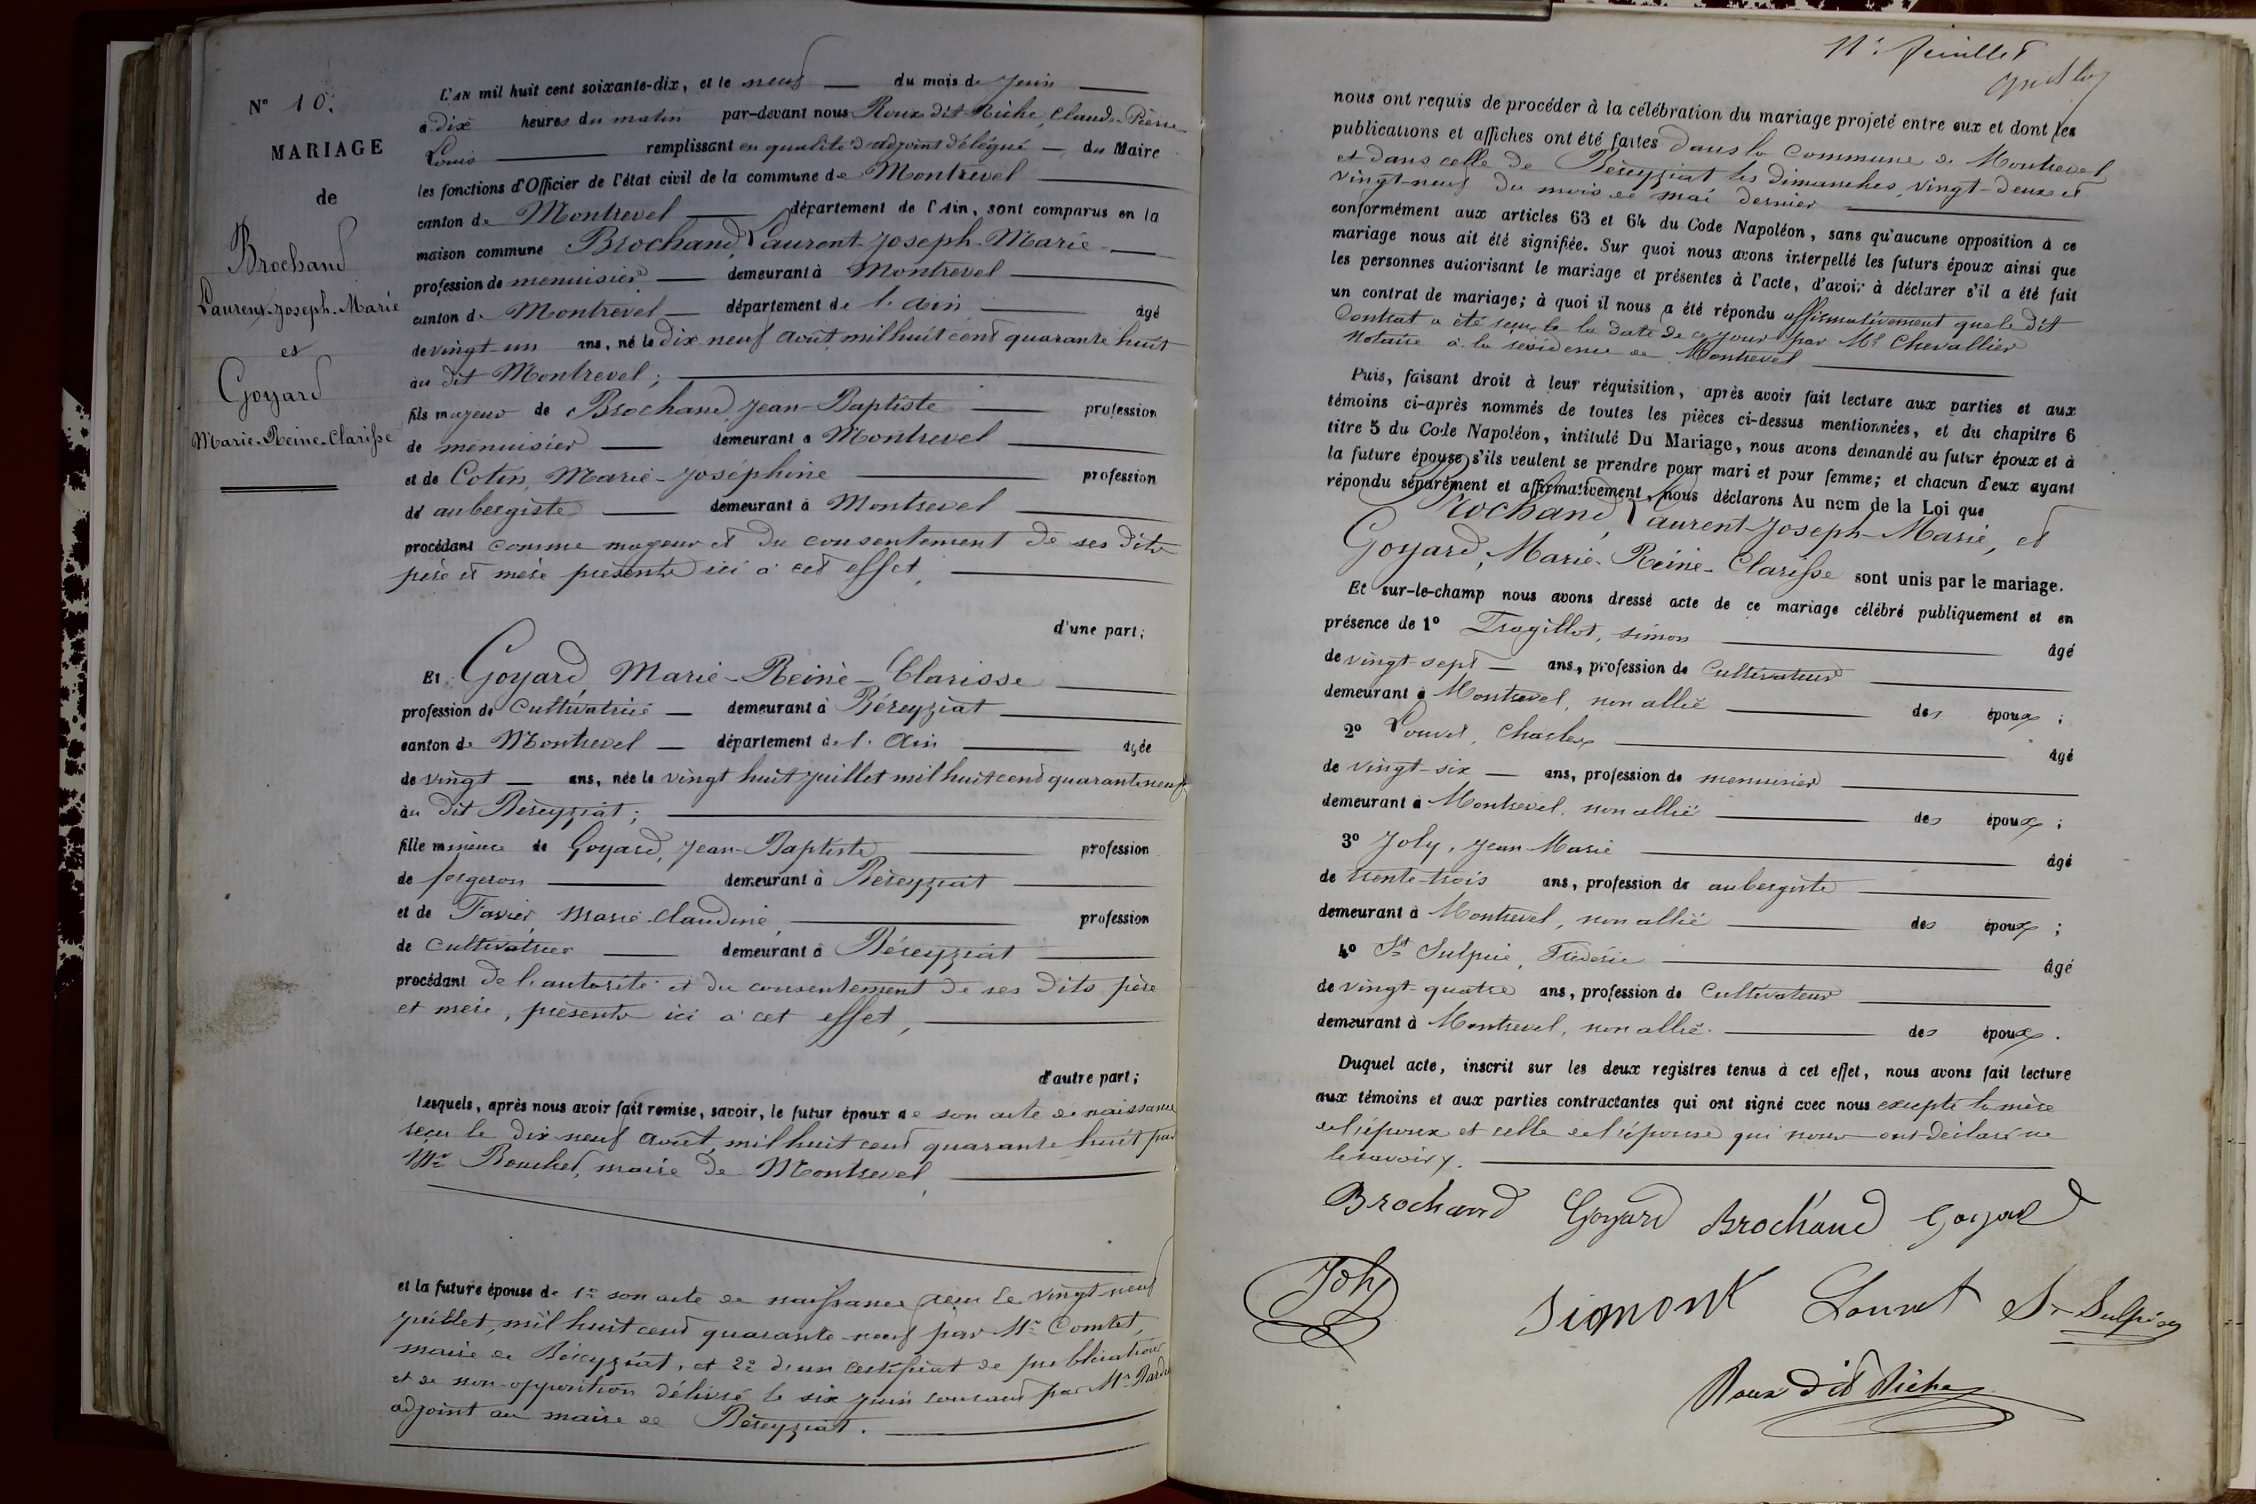 N° 10.
MARIAGE
de
Brochand
Laurent-Joseph-Marie
et
Goyard
Marie-Reine-Clarisse
L'AN mil huit cent soixante-dix, et le neuf du mois de Juin
à dix heures du matin par-devant nous Roux dit Riche, Claude-Pierre
Louis remplissant en qualité d'adjoint délégué du Maire
les fonctions d'Officier de l'état civil de la commune de Montrevel
canton de Montrevel département de l'Ain, sont comparus en la
maison commune Brochand, Laurent-Joseph-Marie
profession de menuisier demeurant à Montrevel
canton de Montrevel département de l'ain âgé
de vingt-un ans, né le dix neuf août mil huit cent quarante huit
au dit Montrevel;
fils majeur de Brochand, Jean-Baptiste profession
de menuisier demeurant à Montrevel
et de Cotin, Marie-Joséphine profession
de aubergiste demeurant à Montrevel
procédant comme majeur et du consentement de ses dits
père et mère présents ici à cet effet,
d'une part;
Et Goyard Marie-Reine-Clarisse
profession de Cultivatrice demeurant à Béreyziat
canton de Montrevel département de l'Ain âgée
de vingt ans, née le vingt huit juillet mil huit cent quarante neuf
au dit Béreyziat;
fille mineure de Goyard, Jean-Baptiste profession
de forgeron demeurant à Béreyziat
et de Favier, Marie-Claudine, profession
de Cultivatrice demeurant à Béreyziat
procédant de l'autorité et du consentement de ses dits père
et mère, présents ici à cet effet,
d'autre part;
Lesquels, après nous avoir fait remise, savoir, le futur époux de son acte de naissance
reçu le dix neuf août mil huit cent quarante huit par
Mr Bouchet, maire de Montrevel
et la future épouse de 1° son acte de naissance reçu le vingt-neuf
juillet, mil huit cent quarante-neuf par Mr Comtet,
maire de Béreyziat, et 2° d'un certificat de publication
et de non-opposition délivré le six juin courant par Mr
adjoint au maire de Béreyziat.
11e feuillet
nous ont requis de procéder à la célébration du mariage projeté entre eux et dont les
publications et affiches ont été faites dans la Commune de Montrevel
et dans celle de Béreyziat les dimanches vingt-deux et
vingt-neuf du mois de mai dernier
conformément aux articles 63 et 64 du Code Napoléon, sans qu'aucune opposition à ce
mariage nous ait été signifiée. Sur quoi nous avons interpellé les futurs époux ainsi que
les personnes autorisant le mariage et présentes à l'acte, d'avoir à déclarer s'il a été fait
un contrat de mariage; à quoi il nous a été répondu affirmativement que le dit
Contrat a été reçu le la date de ce jour par Me Chevallier
Notaire à la résidence de Montrevel
Puis, faisant droit à leur réquisition, après avoir fait lecture aux parties et aux
témoins ci-après nommés de toutes les pièces ci-dessus mentionnées, et du chapitre 6
titre 5 du Code Napoléon, intitulé Du Mariage, nous avons demandé au futur époux et à
la future épouse s'ils veulent se prendre pour mari et pour femme; et chacun d'eux ayant
répondu séparément et affirmativement, nous déclarons Au nom de la Loi que
Brochand, Laurent-Joseph-Marie, et
Goyard, Marie-Reine-Clarisse sont unis par le mariage.
Et sur-le-champ nous avons dressé acte de ce mariage célébré publiquement et en
présence de 1° Tragillot, simon âgé
de vingt sept ans, profession de Cultivateur
demeurant à Montrevel, non allié des époux;
2° Louvet, Charles âgé
de vingt-six ans, profession de menuisier
demeurant à Montrevel, non allié des époux;
3° Joly, Jean-Marie âgé
de trente-trois ans, profession de aubergiste
demeurant à Montrevel, non allié des époux;
4° St Sulpice, Frédéric âgé
de vingt-quatre ans, profession de Cultivateur
demeurant à Montrevel, non allié. des époux.
Duquel acte, inscrit sur les deux registres tenus à cet effet, nous avons fait lecture
aux témoins et aux parties contractantes qui ont signé avec nous excepté la mère
de l'époux et celle de l'épouse qui nous ont déclaré ne
le savoir.
Brochand Goyard Brochand Goyard
Joly Simont Louvet St Sulpice
Roux dit Riche